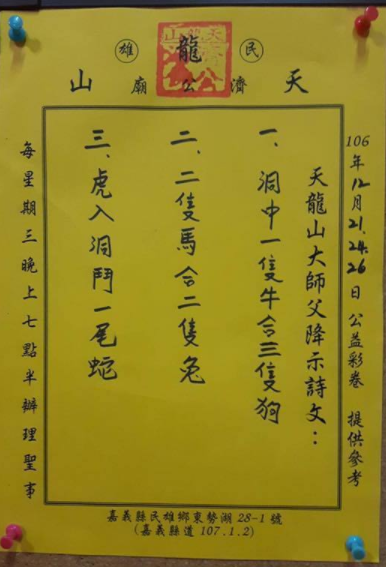 民龍雄
天濟公廟山
106年12月21.24.26日 公益彩卷 提供參考
天龍山大師父降示詩文：
一、洞中一隻牛合三隻狗
二、二隻馬合二隻兔
三、虎入洞鬥一尾蛇
每星期三晚上七點半辦理聖事
嘉義縣民雄鄉東勢湖28-1號
(嘉義縣道107.1.2)